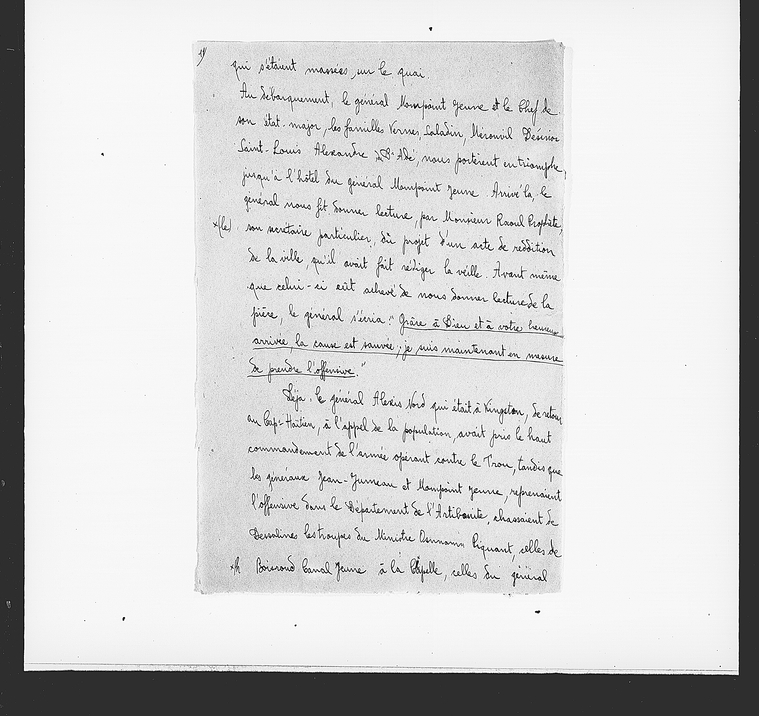 qui s'étaient massées sur le quai.
Au débarquement, le général Mompoint Jeune et le Chef de
son état-major, les familles Vernes, Saladin, Mérouvil Désinor
Saint-Louis Alexandre St Adé, nous portèrent en triomphe,
jusqu'à l'hôtel du général Mompoint Jeune. Arrivé là, le
général nous fit donner lecture, par Monsieur Raoul Prophète,
x(le) son secrétaire particulier, du projet d'un acte de reddition
de la ville, qu'il avait fait rédiger la veille. Avant même
que celui-ci eût achevé de nous donner lecture de la
pièce, le général s'écria: "Grâce à Dieu et à votre heureuse
arrivée, la cause est sauvée; je suis maintenant en mesure
de prendre l'offensive."
Déja, le général Alexis Nord qui était à Kingston, de retour
au Cap-Haïtien, à l'appel de la population, avait pris le haut
commandement de l'armée opérant contre le Trou, tandis que
les généraux Jean-Jumeau et Mompoint Jeune, reprenaient
l'offensive dans le Département de l'Artibonite, chassaient de
Dessalines les troupes du Ministre Osmann Piquant, celles de
Boisrond Canal Jeune à la Chapelle, celles du général